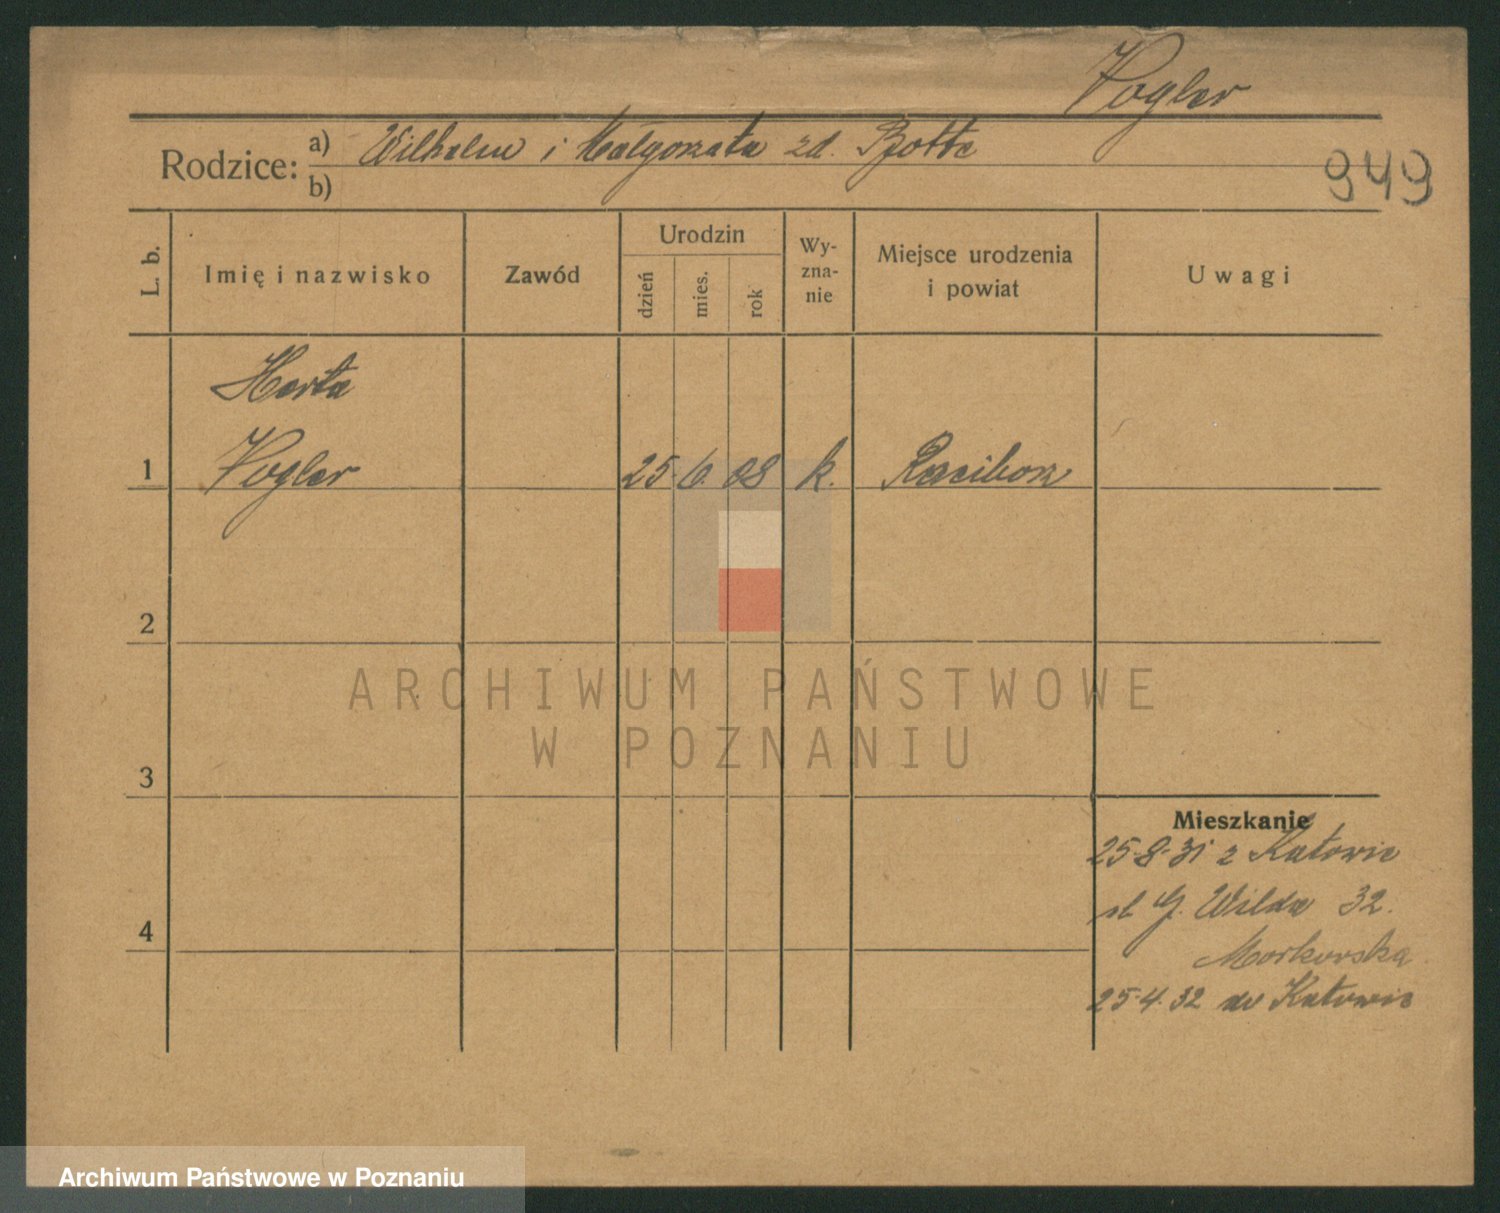 Vogler
Rodzice: a) Wilhelm i Małgorzata zd.
b)
949
L. b.
Imię i nazwisko
Zawód
Urodzin
dzień
mies.
rok
Wy-
zna-
nie
Miejsce urodzenia
i powiat
Uwagi
Herta
1 Vogler 25. 6. 08 k. Raciborz
2
3
4
Mieszkanie
25-8-31 z Katowic
G. Wilda 32.
25-4.32 do Katowic
ARCHIWUM PAŃSTWOWE
W POZNANIU
Archiwum Państwowe w Poznaniu